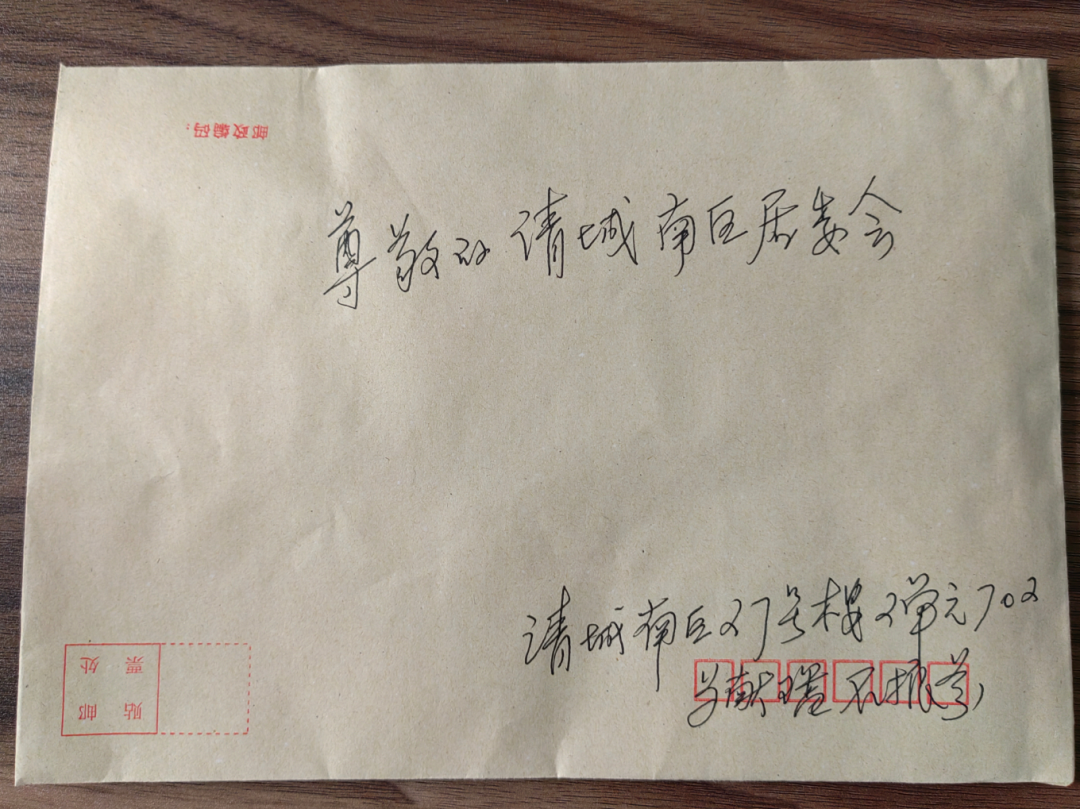 邮政编码：
尊敬的清城南区居委会
清城南区27号楼2单元702
贴邮
票处